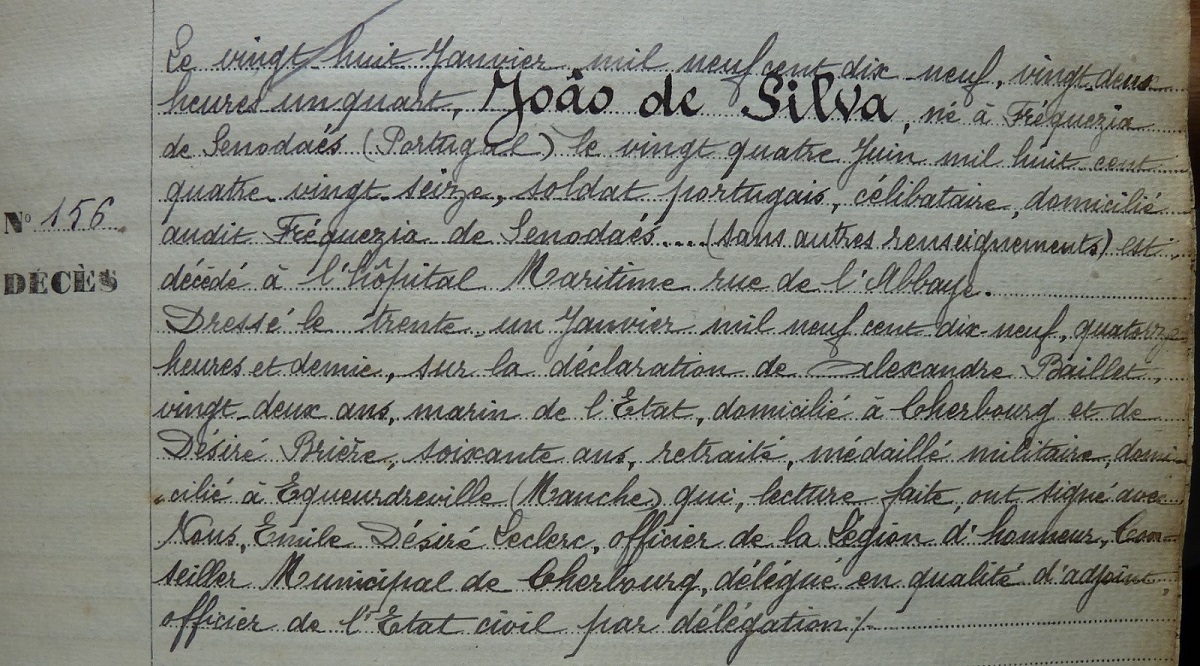 Le vingt huit Janvier mil neuf cent dix-neuf, vingt-deux
heures un quart, João de Silva, né à Fréquezia
de Senodaés (Portugal) le vingt quatre Juin mil huit cent
quatre-vingt-seize, soldat portugais, célibataire, domicilié
Nº 156
audit Fréquezia de Senodaés....(sans autres renseignements) est
DÉCÈS
décédé à l'hôpital Maritime rue de l'Abbaye.
Dressé le trente-un Janvier mil neuf cent dix-neuf, quatorze
heures et demie, sur la déclaration de Alexandre Baillet,
vingt-deux ans, marin de l'Etat, domicilié à Cherbourg et de
Désiré Brière, soixante ans, retraité, médaillé militaire, domi-
cilié à Equeurdreville (Manche) qui, lecture faite, ont signé avec
Nous, Emile Désiré Leclerc, officier de la Légion d'honneur, Con-
seiller Municipal de Cherbourg, délégué en qualité d'adjoint,
officier de l'Etat civil par délégation /.